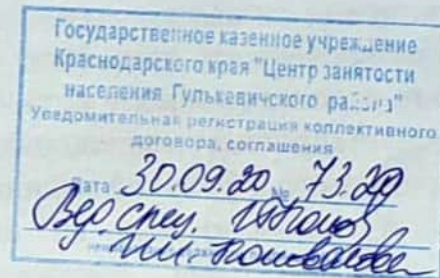 Государственное казенное учреждение
Краснодарского края "Центр занятости
населения Гулькевичского района"
Уведомительная регистрация коллективного
договора, соглашения
Дата 30.09.20 № 73.20
Вед. спец.